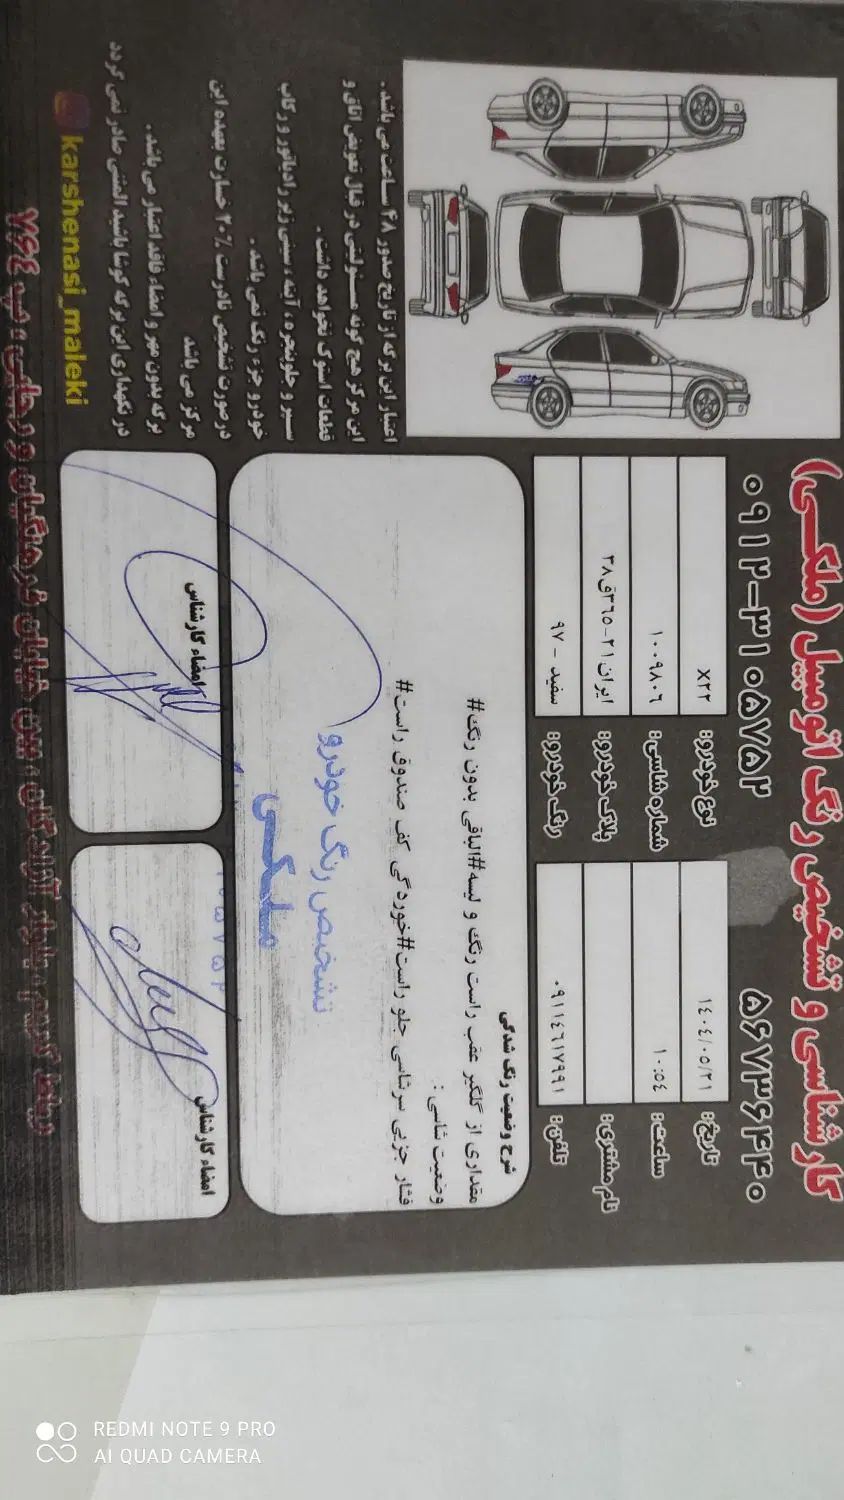 کارشناسی و تشخیص رنگ اتومبیل (ملکی)
۵۶۷۳۶۴۴۰
۰۹۱۲-۳۱۰۵۷۵۲
تاریخ: ١٤٠٤/٠٥/٢١
ساعت: ١٠:٥٤
نام مشتری:
تلفن: ٠٩١١٤٦١٧٩٩١
نوع خودرو: X٢٢
شماره شاسی: ١٠٠٩٨٠٦
پلاک خودرو: ایران ٢١-٣٦٥ق٣٨
رنگ خودرو: سفید - ٩٧
شرح وضعیت رنگ شدگی
مقداری از گلگیر عقب راست رنگ و لیسه#الباقی بدون رنگ#
وضعیت شاسی :
فشار جزیی سرشاسی جلو راست#خوردگی کف صندوق راست#
تشخیص رنگ خودرو
ملکی
امضاء کارشناس
امضاء کارشناس
اعتبار این برگه از تاریخ صدور ۴۸ ساعت می باشد.
این مرکز هیچ گونه مسئولیتی در قبال تعویض اتاق و
قطعات استوک نخواهد داشت.
سپر و جلوپنجره، آینه، سینی زیر رادیاتور و رکاب
خودرو جزء رنگ نمی باشد.
درصورت تشخیص نادرست ۲۰٪ خسارت بعهده این
مرکز می باشد
برگه بدون مهر و امضاء فاقد اعتبار می باشد.
در نگهداری این برگه کوشا باشید المثنی صادر نمی گردد
karshenasi_maleki
رباط کریم، بلوار آزادگان، بین خیابان فرهنگیان و رجایی، پ ۷۶۴
REDMI NOTE 9 PRO
AI QUAD CAMERA